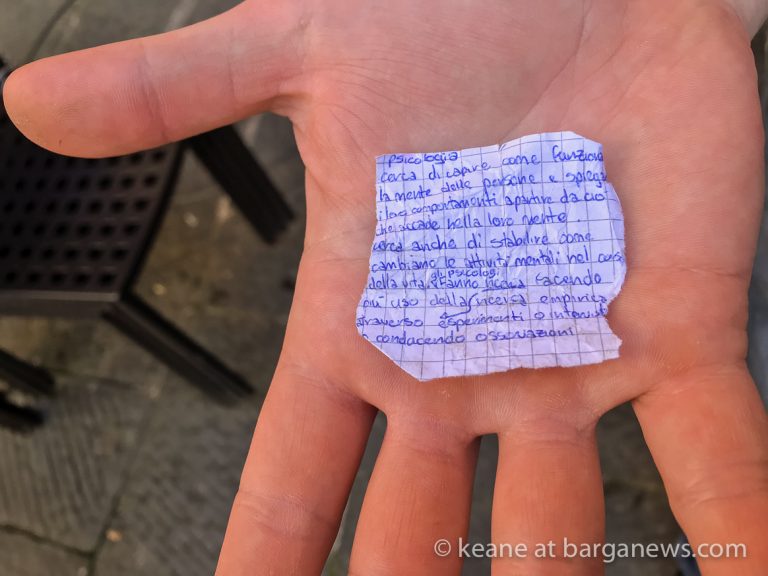 psicologia
cerca di capire come funziona
la mente delle persone e spiega
i loro comportamenti apartire da ciò
che accade nella loro mente.
cerca anche di stabilire come
cambiano le attività mentali nel corso
della vita. gli psicologi fanno facendo
più uso della ricerca empirica
atraverso esperimenti o intervist
conducendo osservazioni
© keane at barganews.com